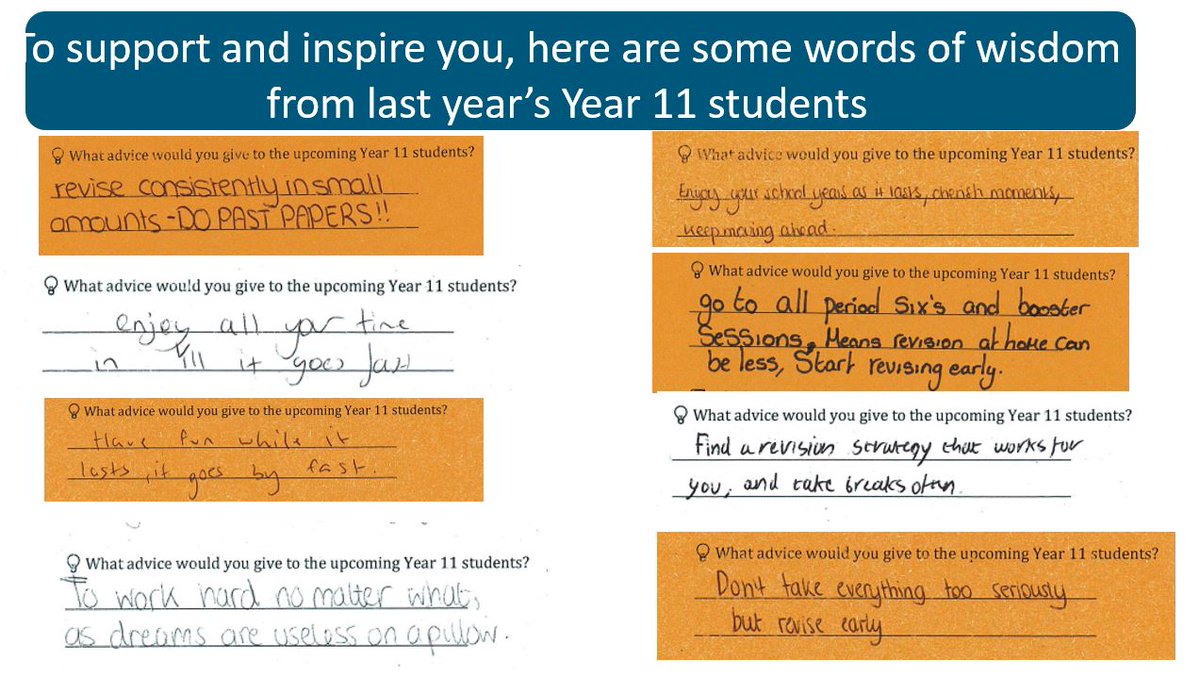 To support and inspire you, here are some words of wisdom
from last year's Year 11 students
What advice would you give to the upcoming Year 11 students?
revise consistently in small
amounts - DO PAST PAPERS!!
What advice would you give to the upcoming Year 11 students?
enjoy all your time
in Y11 it goes fast
What advice would you give to the upcoming Year 11 students?
Have fun while it
lasts, it goes by fast.
What advice would you give to the upcoming Year 11 students?
To work hard no matter what,
as dreams are useless on a pillow.
What advice would you give to the upcoming Year 11 students?
Enjoy your school years as it lasts, cherish moments,
keep moving ahead.
What advice would you give to the upcoming Year 11 students?
go to all period six's and booster
sessions, Means revision at home can
be less, Start revising early.
What advice would you give to the upcoming Year 11 students?
Find a revision strategy that works for
you, and take breaks often.
What advice would you give to the upcoming Year 11 students?
Don't take everything too seriously
but revise early